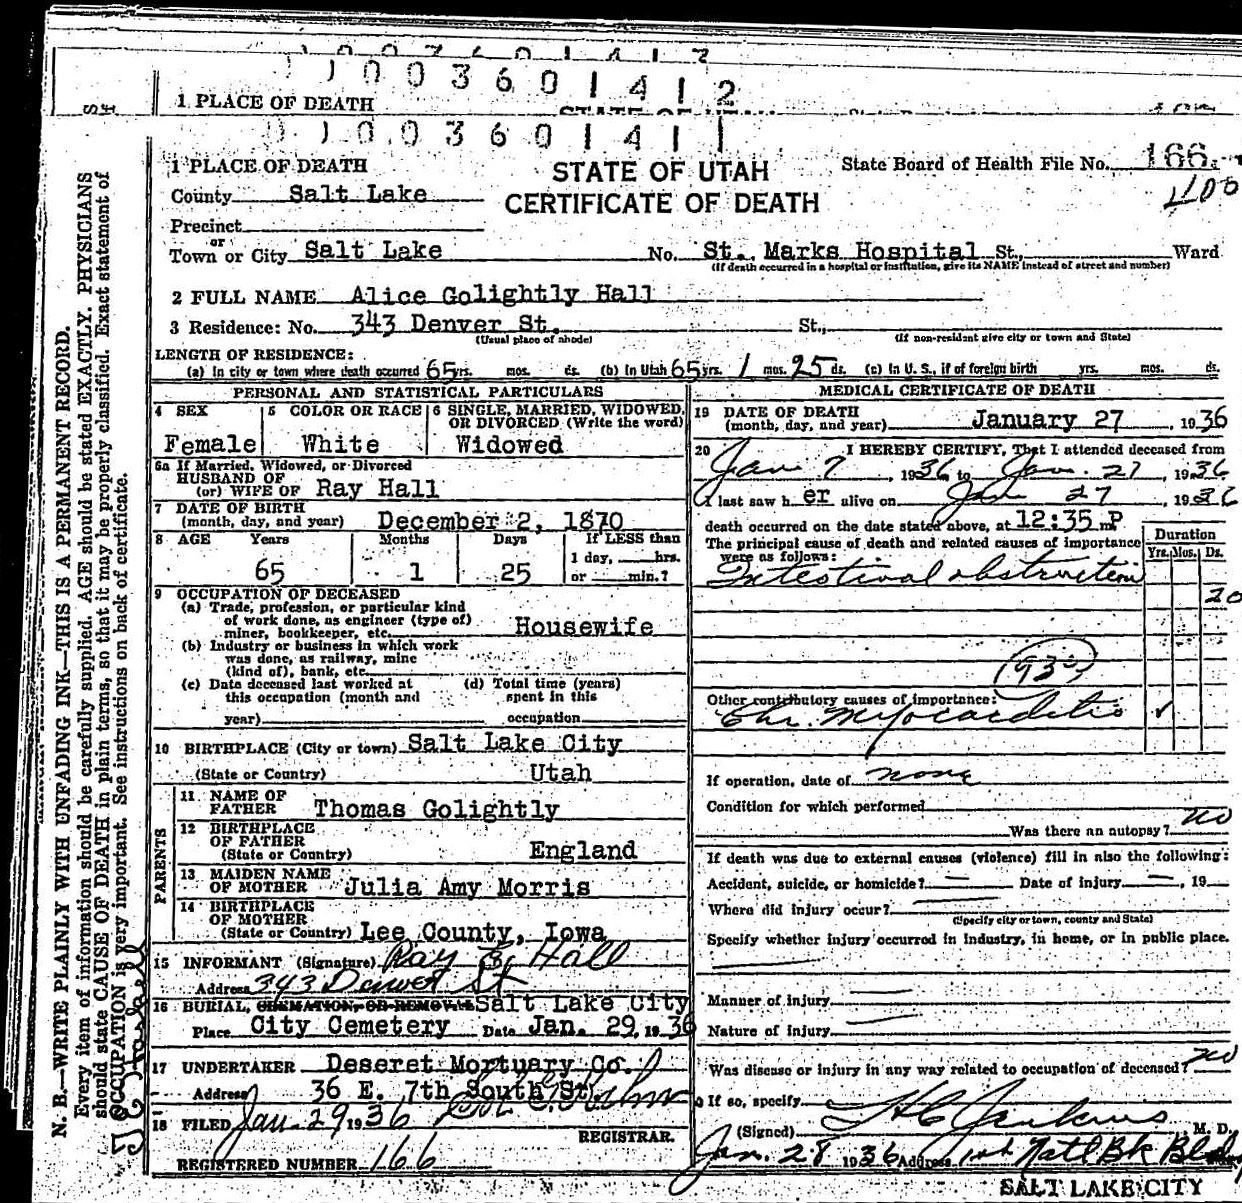 1003601412
1 PLACE OF DEATH
1003601411
1 PLACE OF DEATH
STATE OF UTAH
CERTIFICATE OF DEATH
State Board of Health File No. 166
400
County Salt Lake
Precinct
or
Town or City Salt Lake No. St. Marks Hospital St., Ward
(If death occurred in a hospital or institution, give its NAME instead of street and number)
2 FULL NAME Alice Golightly Hall
3 Residence: No. 343 Denver St. St.,
(Usual place of abode) (If non-resident give city or town and State)
LENGTH OF RESIDENCE:
(a) In city or town where death occurred 65 yrs. mos. ds. (b) In Utah 65 yrs. 1 mos. 25 ds. (c) In U. S., if of foreign birth yrs. mos. ds.
PERSONAL AND STATISTICAL PARTICULARS
4 SEX 5 COLOR OR RACE 6 SINGLE, MARRIED, WIDOWED,
OR DIVORCED (Write the word)
Female White Widowed
6a If Married, Widowed, or Divorced
HUSBAND OF
(or) WIFE OF Ray Hall
7 DATE OF BIRTH
(month, day, and year) December 2, 1870
8 AGE Years Months Days If LESS than
1 day, hrs.
65 1 25 or min.?
9 OCCUPATION OF DECEASED
(a) Trade, profession, or particular kind
of work done, as engineer (type of)
miner, bookkeeper, etc. Housewife
(b) Industry or business in which work
was done, as railway, mine
(kind of), bank, etc.
(c) Date deceased last worked at (d) Total time (years)
this occupation (month and spent in this
year) occupation
10 BIRTHPLACE (City or town) Salt Lake City
(State or Country) Utah
PARENTS
11 NAME OF
FATHER Thomas Golightly
12 BIRTHPLACE
OF FATHER
(State or Country) England
13 MAIDEN NAME
OF MOTHER Julia Amy Morris
14 BIRTHPLACE
OF MOTHER
(State or Country) Lee County, Iowa
15 INFORMANT (Signature) Ray B. Hall
Address 343 Denver St
16 BURIAL, CREMATION, OR REMOVAL Salt Lake City
Place City Cemetery Date Jan. 29, 1936
17 UNDERTAKER Deseret Mortuary Co.
Address 36 E. 7th South St.
18 FILED Jan 29 1936
REGISTRAR.
REGISTERED NUMBER 166
MEDICAL CERTIFICATE OF DEATH
19 DATE OF DEATH
(month, day, and year) January 27, 1936
20 I HEREBY CERTIFY, That I attended deceased from
Jan 7, 1936 to Jan. 27, 1936
I last saw her alive on Jan 27, 1936
death occurred on the date stated above, at 12:35 m P
The principal cause of death and related causes of importance
were as follows:
Duration
Yrs. Mos. Ds.
Intestinal obstruction
20
Other contributory causes of importance:
Chr. Myocarditis ✓
If operation, date of none
Condition for which performed
Was there an autopsy? no
If death was due to external causes (violence) fill in also the following:
Accident, suicide, or homicide? — Date of injury —, 19
Where did injury occur?
(Specify city or town, county and State)
Specify whether injury occurred in industry, in home, or in public place.
Manner of injury
Nature of injury
Was disease or injury in any way related to occupation of deceased? no
If so, specify
(Signed) H C Jenkins M. D.
Jan. 28 1936 Address 1st Natl Bk Bldg
SALT LAKE CITY
N. B.—WRITE PLAINLY WITH UNFADING INK—THIS IS A PERMANENT RECORD.
Every item of information should be carefully supplied. AGE should be stated EXACTLY. PHYSICIANS
should state CAUSE OF DEATH in plain terms, so that it may be properly classified. Exact statement of
OCCUPATION is very important. See instructions on back of certificate.